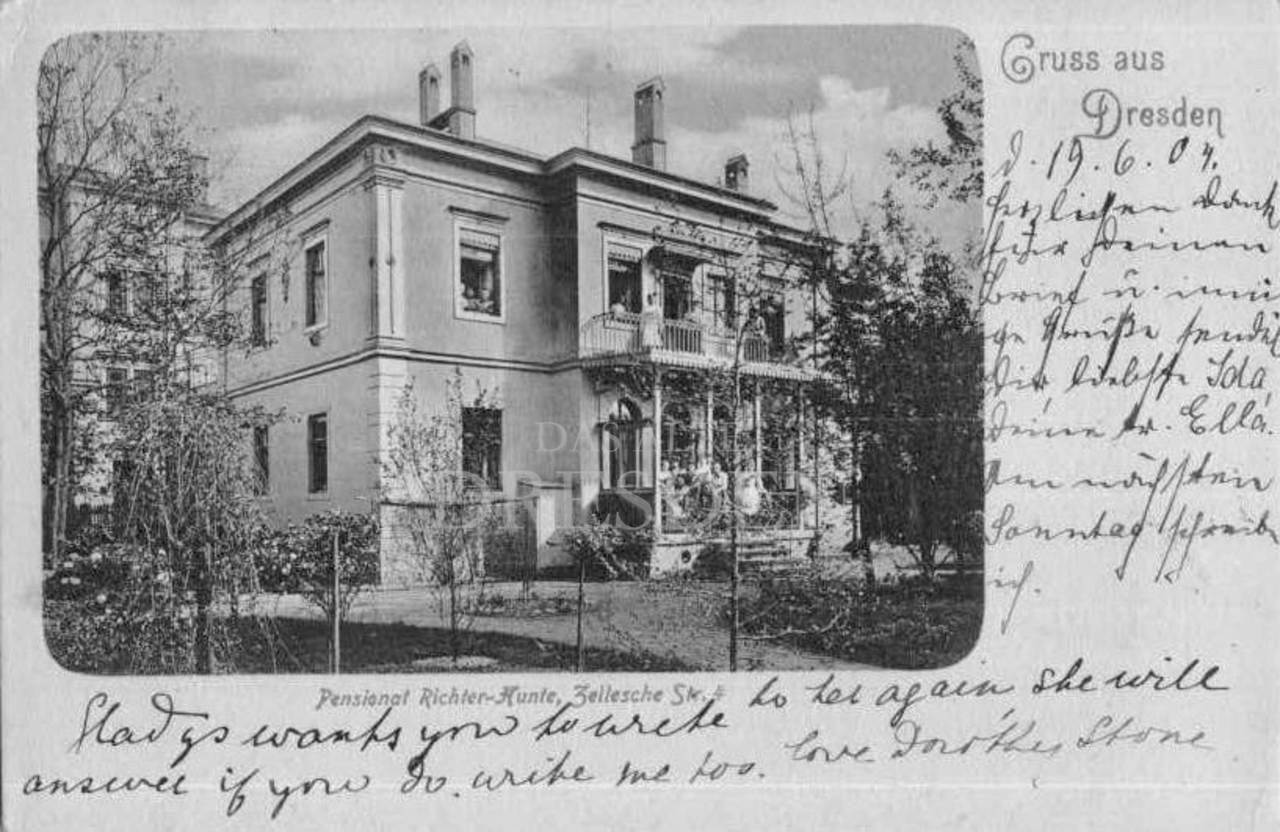 Gruss aus
Dresden
d. 19.6.04.
herzlichen Dank
für Deinen
Brief u. inni
ge Grüße sendet
Dir liebste Ida
Deine tr. Ella.
Am nächsten
Sonntag schreib
ich.
DAS
DRESDEN
Pensionat Richter-Hunte, Zellesche Str. 4
Gladys wants you to write to her again, she will
answer if you do. write me too. love Dorothy Stone